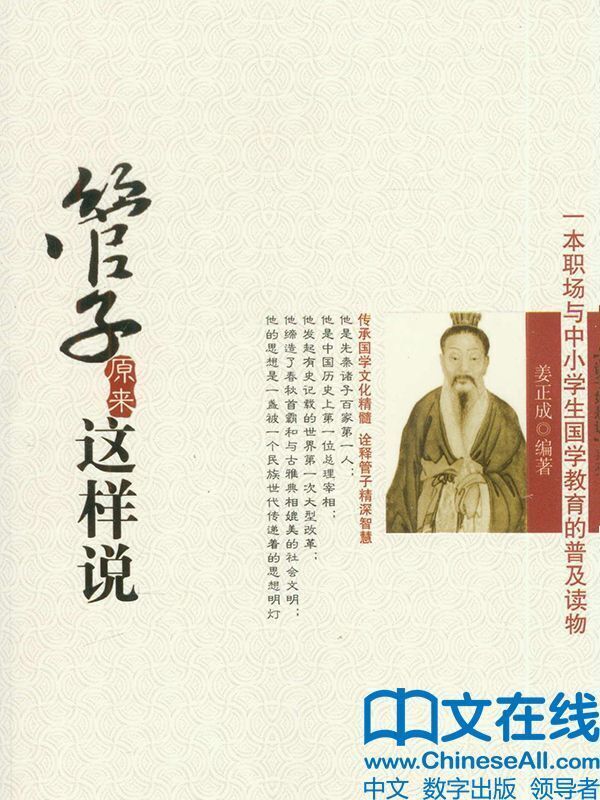 管子
原来
这样说
一本职场与中小学生国学教育的普及读物
姜正成◎编著
传承国学文化精髓 诠释管子精深智慧
他是先秦诸子百家第一人；
他是中国历史上第一位总理宰相；
他发起有史记载的世界第一次大型改革；
他缔造了春秋首霸和与古雅典相媲美的社会文明；
他的思想是一盏被一个民族世代传递着的思想明灯
中文在线
www.ChineseAll.com
中文 数字出版 领导者